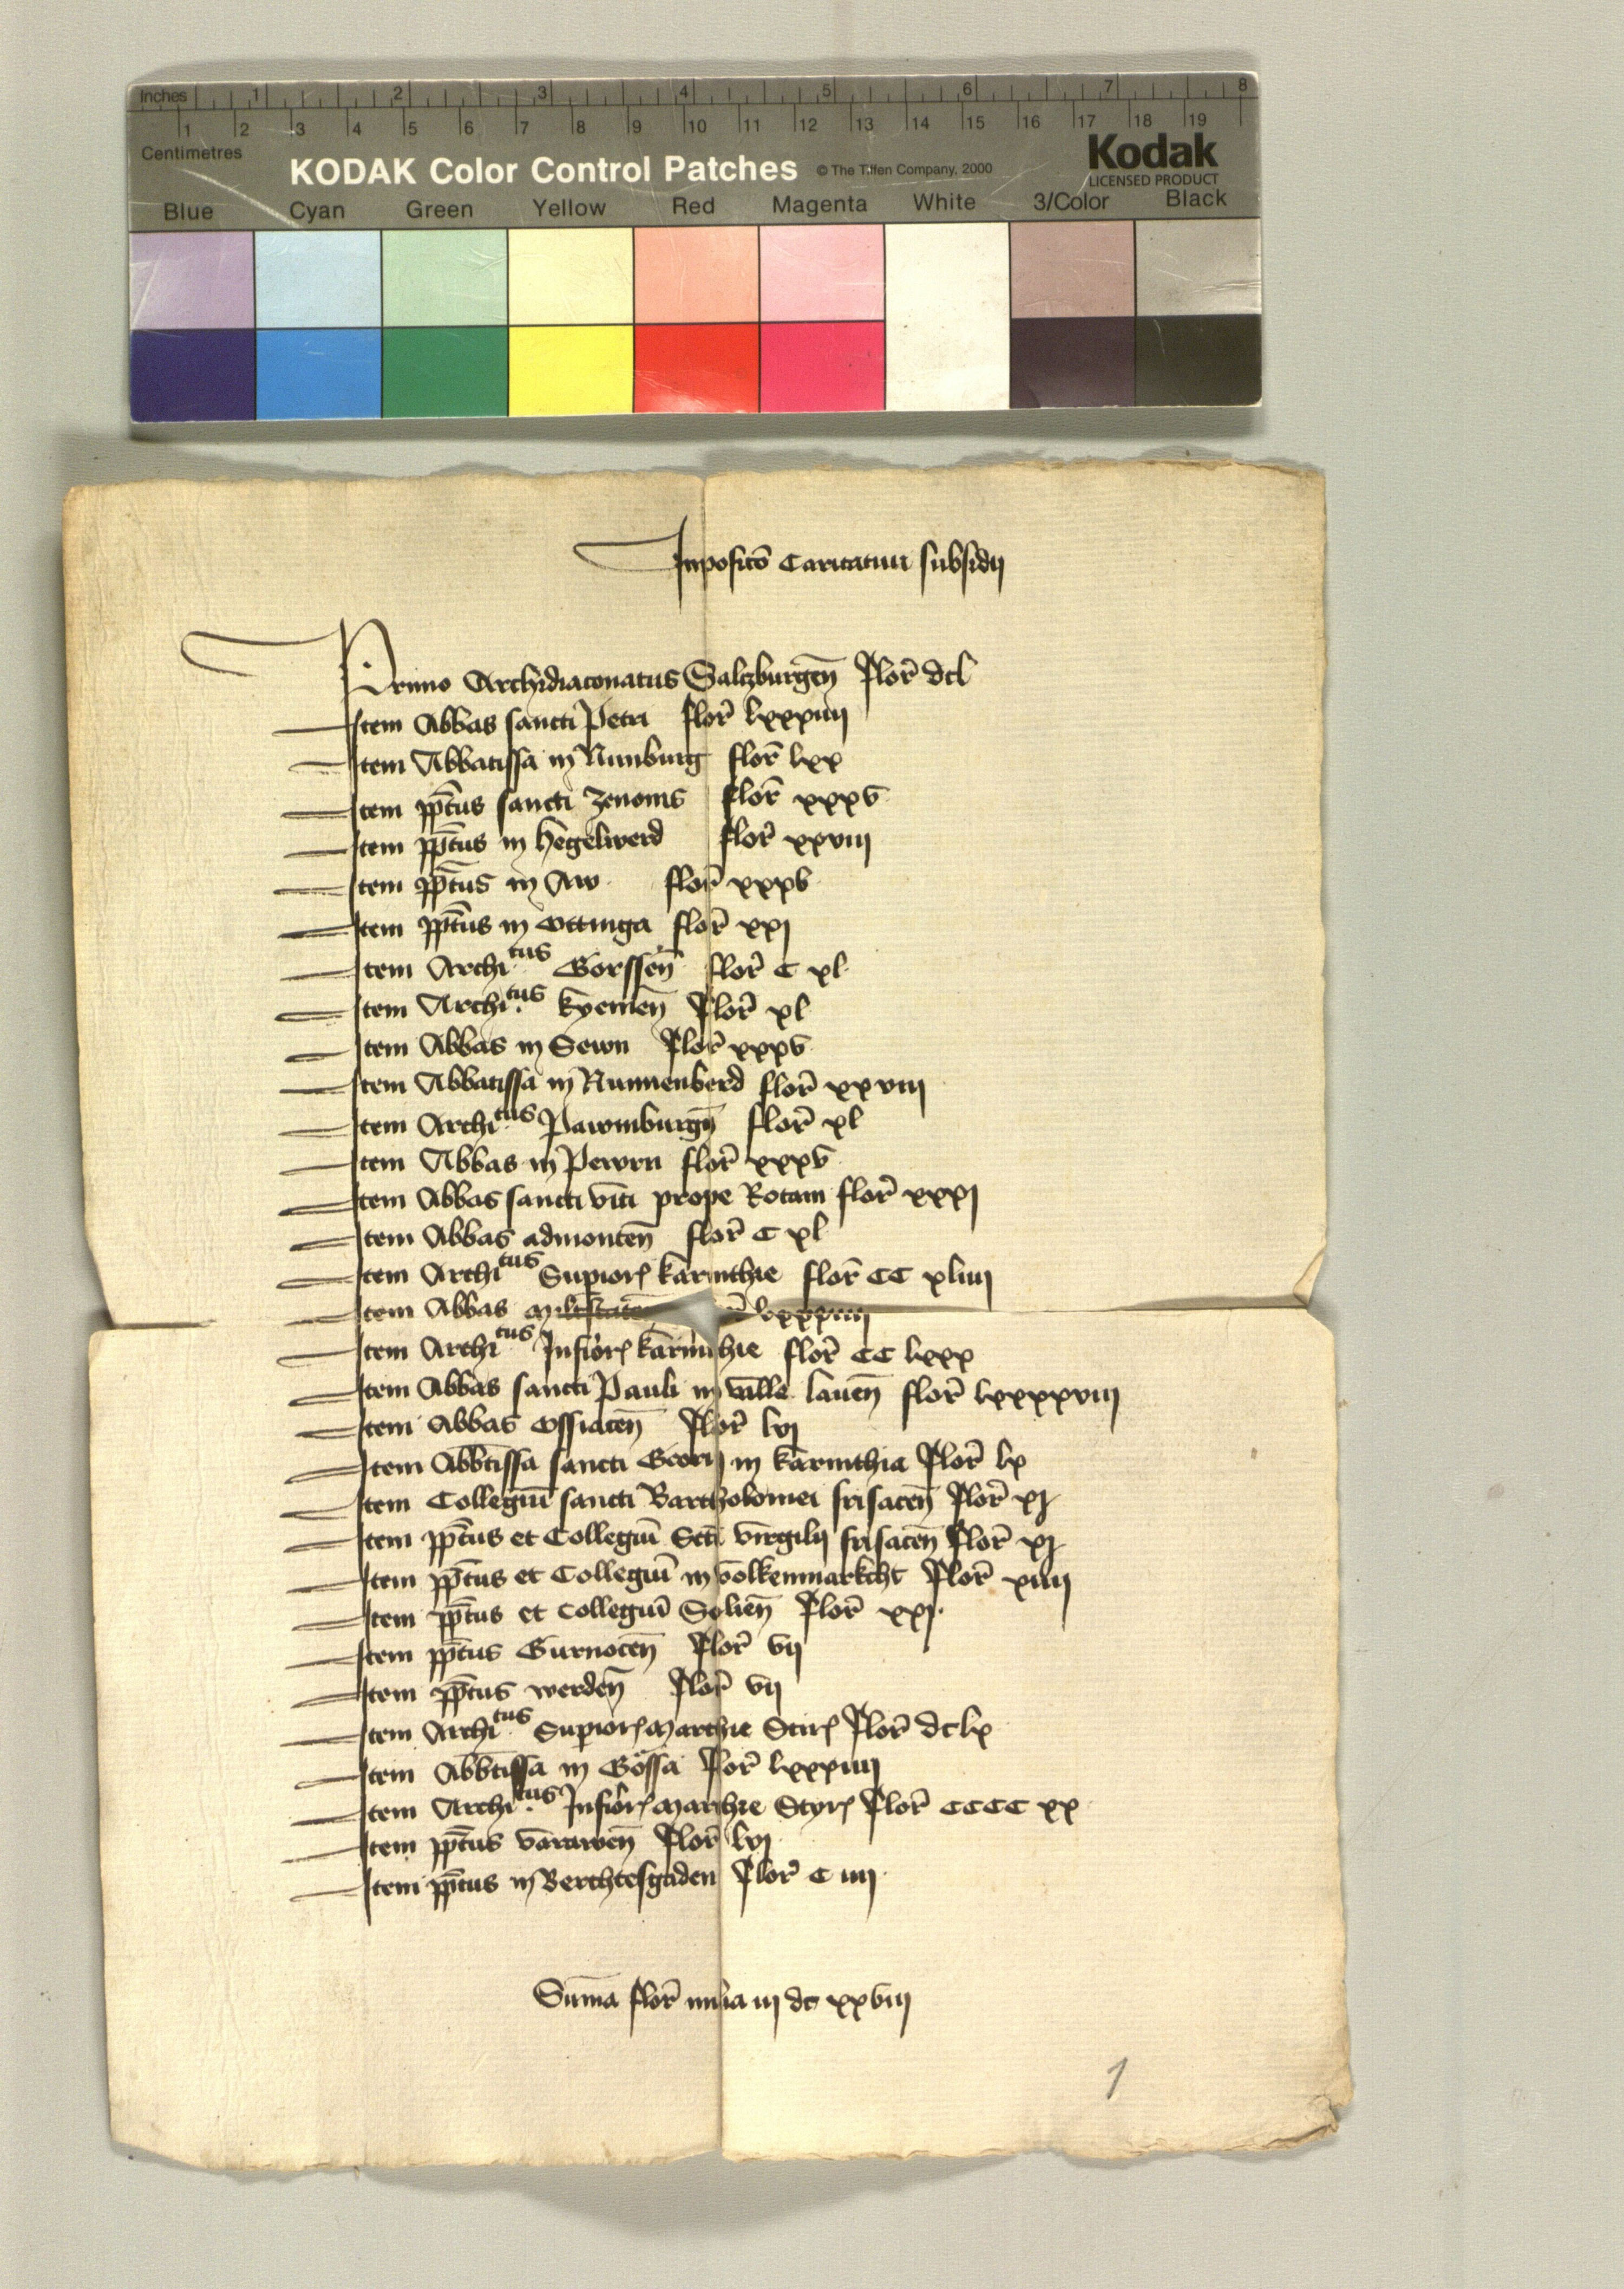 Inches 1 2 3 4 5 6 7 8
1 2 3 4 5 6 7 8 9 10 11 12 13 14 15 16 17 18 19
Centimetres
KODAK Color Control Patches © The Tiffen Company, 2000 Kodak
LICENSED PRODUCT
Blue Cyan Green Yellow Red Magenta White 3/Color Black
Inpositō Caritatiui subsidij
Primo Archidiaconatus Salczburgen̄ Flor̄ dcl
Item Abbas sancti Petri flor̄ lxxxiiij
Item Abbatissa in Nunburg flor̄ lxx
Item pp̄tus sancti Zenonis flor̄ xxxv
Item pp̄tus in Hegelwerd flor̄ xxviij
Item pp̄tus in Aw flor̄ xxxv
Item pp̄tus in Ottinga flor̄ xxj
Item Archi tus Gorssen̄ flor̄ C xl
Item Archi tus kyemen̄ Flor̄ xl
Item Abbas in Sewn Flor̄ xxxv
Item Abbatissa in Nunnenberd flor̄ xxviij
Item Archi tus Pawmburgn̄ flor̄ xl
Item Abbas in Pewrn flor̄ xxxv
Item Abbas sancti viti prope Rotam flor̄ xxxj
Item Abbas admonten̄ flor̄ C xl
Item Archi tus Supior karinthie flor̄ CC xliiij
Item Abbas lxxxiiij
Item Archi tus Infior karinthie flor̄ CC lxxx
Item Abbas sancti Pauli in valle lauen̄ flor̄ lxxxxviij
Item Abbas Ossiacen̄ Flor̄ lvj
Item Abbtissa sancti Georij in karinthia Flor̄ lx
Item Collegiū sancti Bartholomei frisacen̄ Flor̄ xj
Item pp̄tus et Collegiū Scti virgilij frisacen̄ Flor̄ xj
Item pp̄tus et Collegiū in volkenmarkcht Flor̄ xiiij
Item pp̄tus et Collegiū Solien̄ Flor̄ xxj
Item pp̄tus Gurnocen̄ Flor̄ vij
Item pp̄tus werden̄ Flor̄ vij
Item Archi tus Supior Marchie Stir Flor̄ dclx
Item Abbtissa in Gössa Flor̄ lxxxiiij
Item Archi tus Infior Marchie Styr Flor̄ CCCC xx
Item pp̄tus varawen̄ Flor̄ lvj
Item pp̄tus in Berchtesgaden Flor̄ C iiij
Sum̄a flor̄ milia iij dc xxviij
1